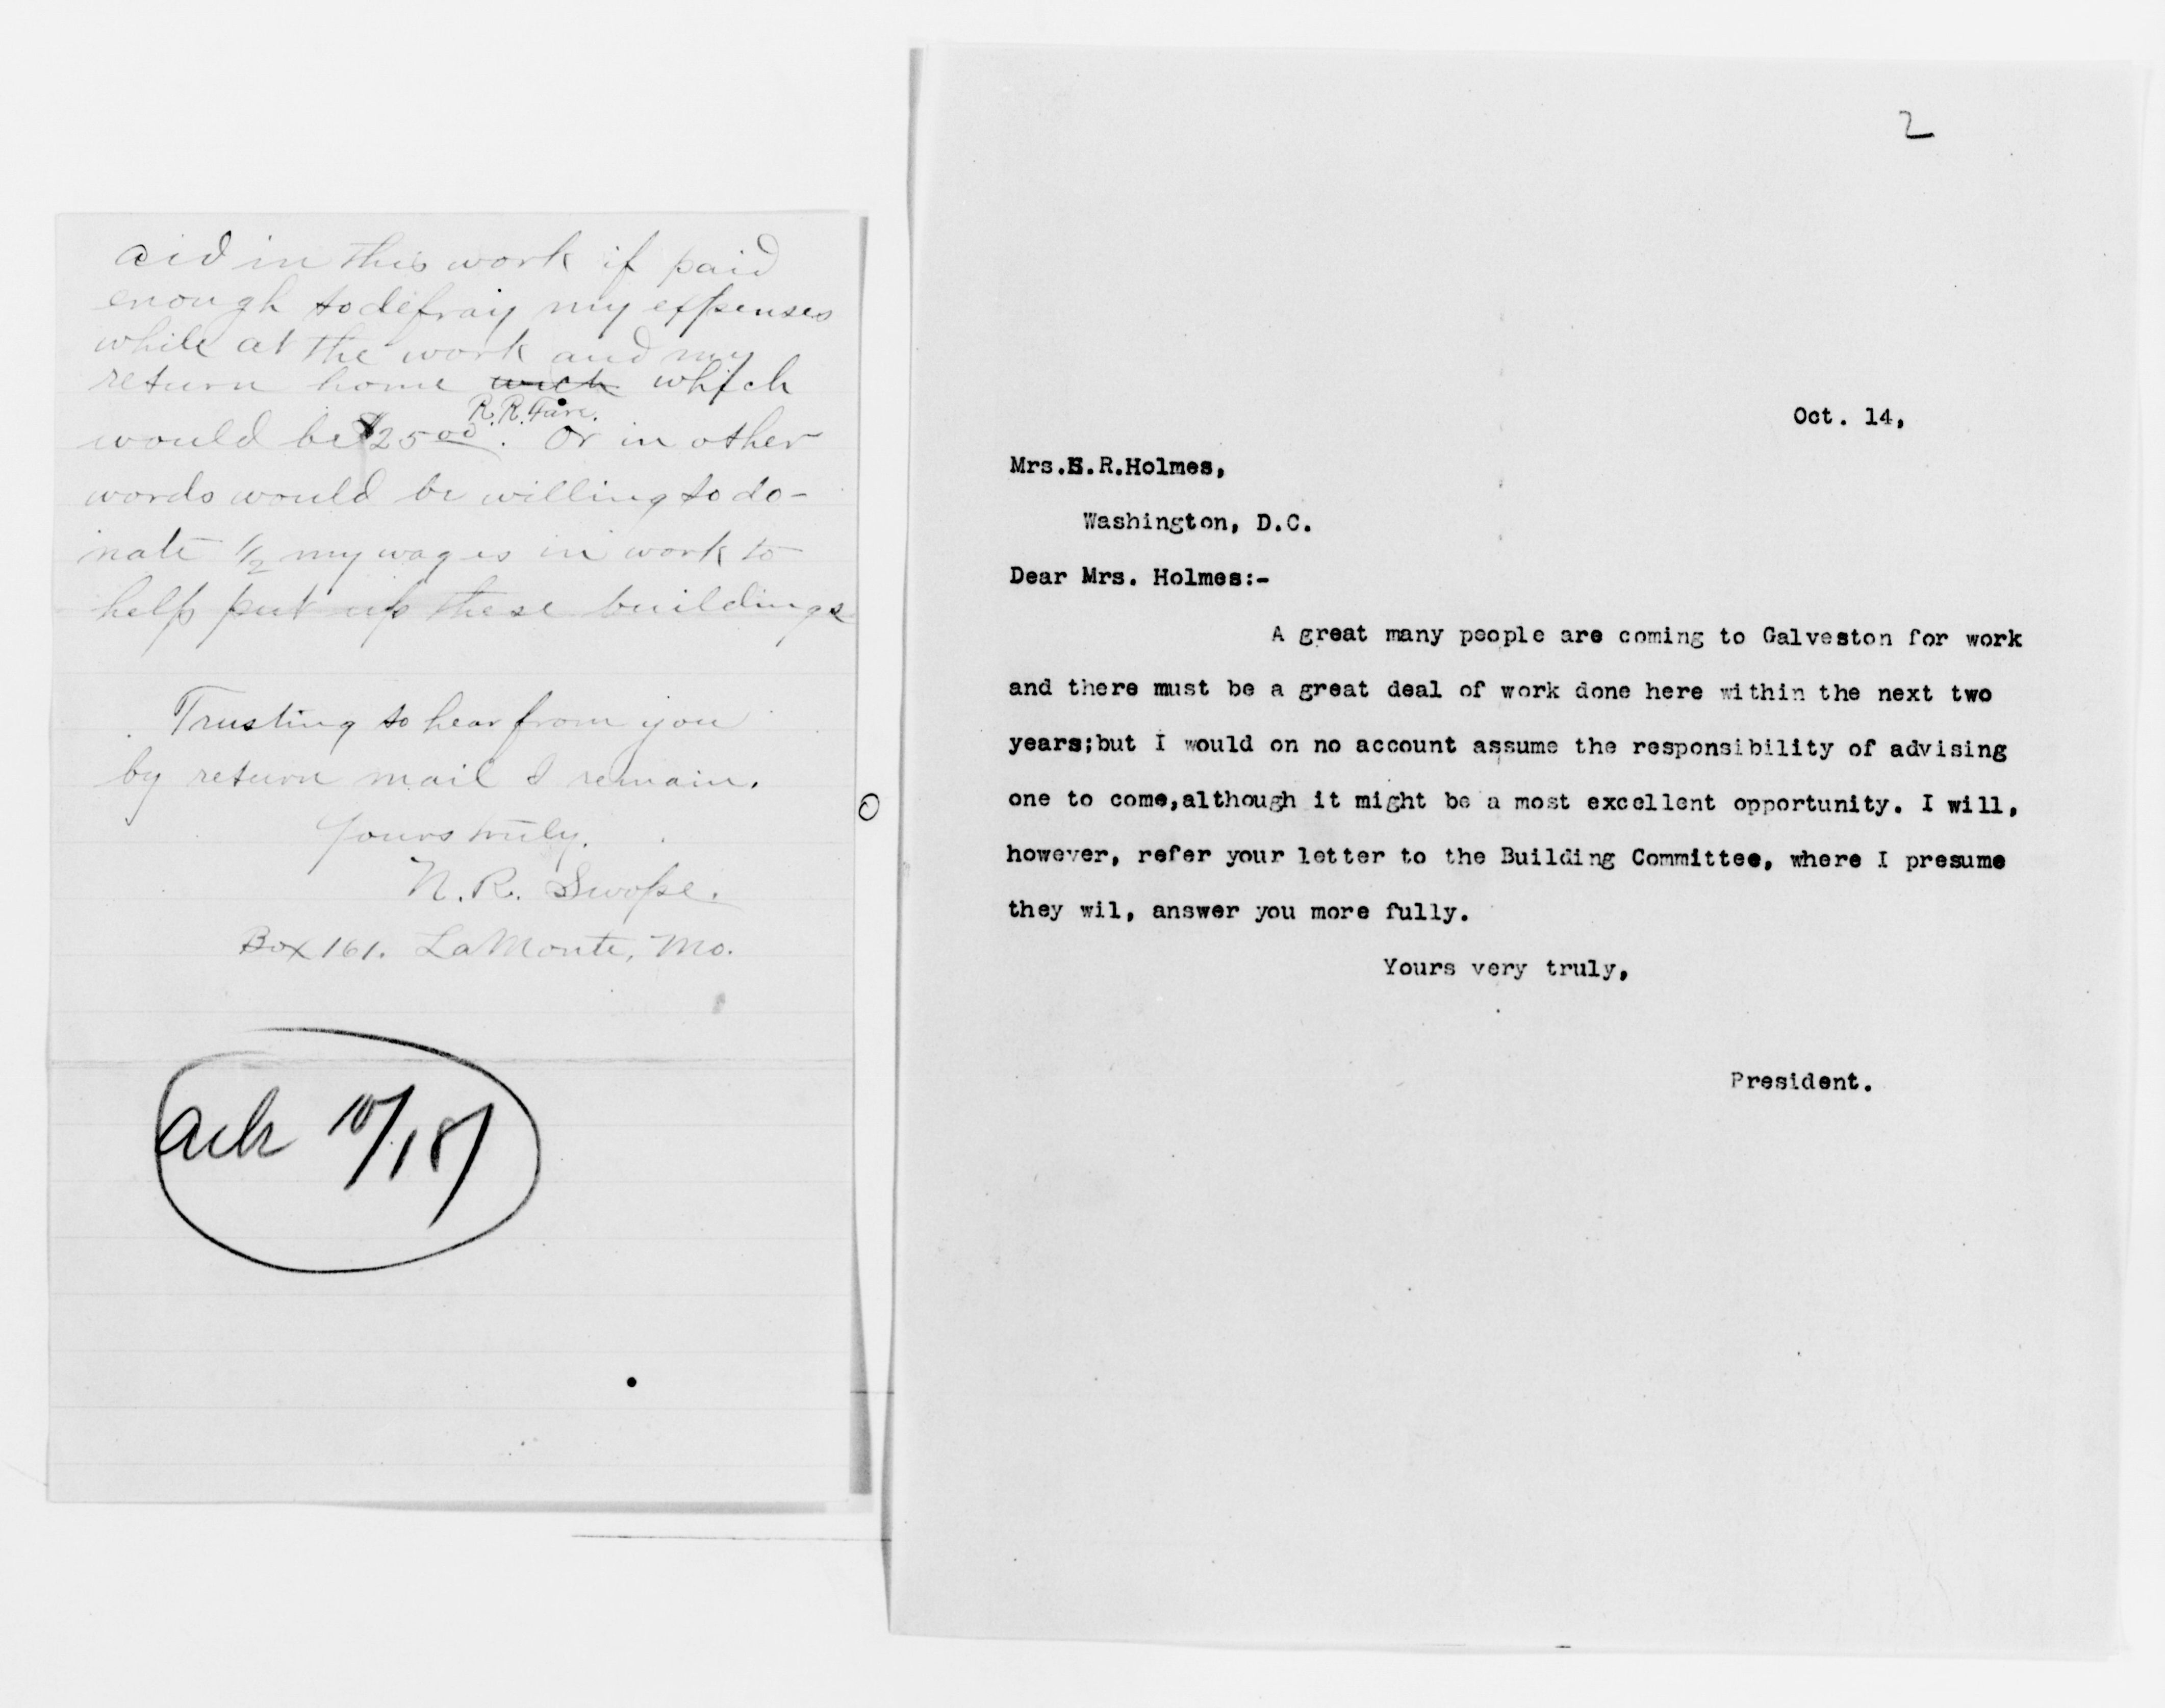 aid in this work if paid
enough to defray my expenses
while at the work and my
return home wich which
R.R. Fare.
would be $25 00. Or in other
words would be willing to do-
nate 1/2 my wages in work to
help put up these buildings
Trusting to hear from you
by return mail I remain.
Yours truly.
N. R. Swope.
Box 161. LaMonte, Mo.
ack 10/18/
2
Oct. 14,
Mrs.E.R.Holmes,
Washington, D.C.
Dear Mrs. Holmes:-
A great many people are coming to Galveston for work
and there must be a great deal of work done here within the next two
years;but I would on no account assume the responsibility of advising
one to come,although it might be a most excellent opportunity. I will,
however, refer your letter to the Building Committee, where I presume
they wil, answer you more fully.
Yours very truly,
President.